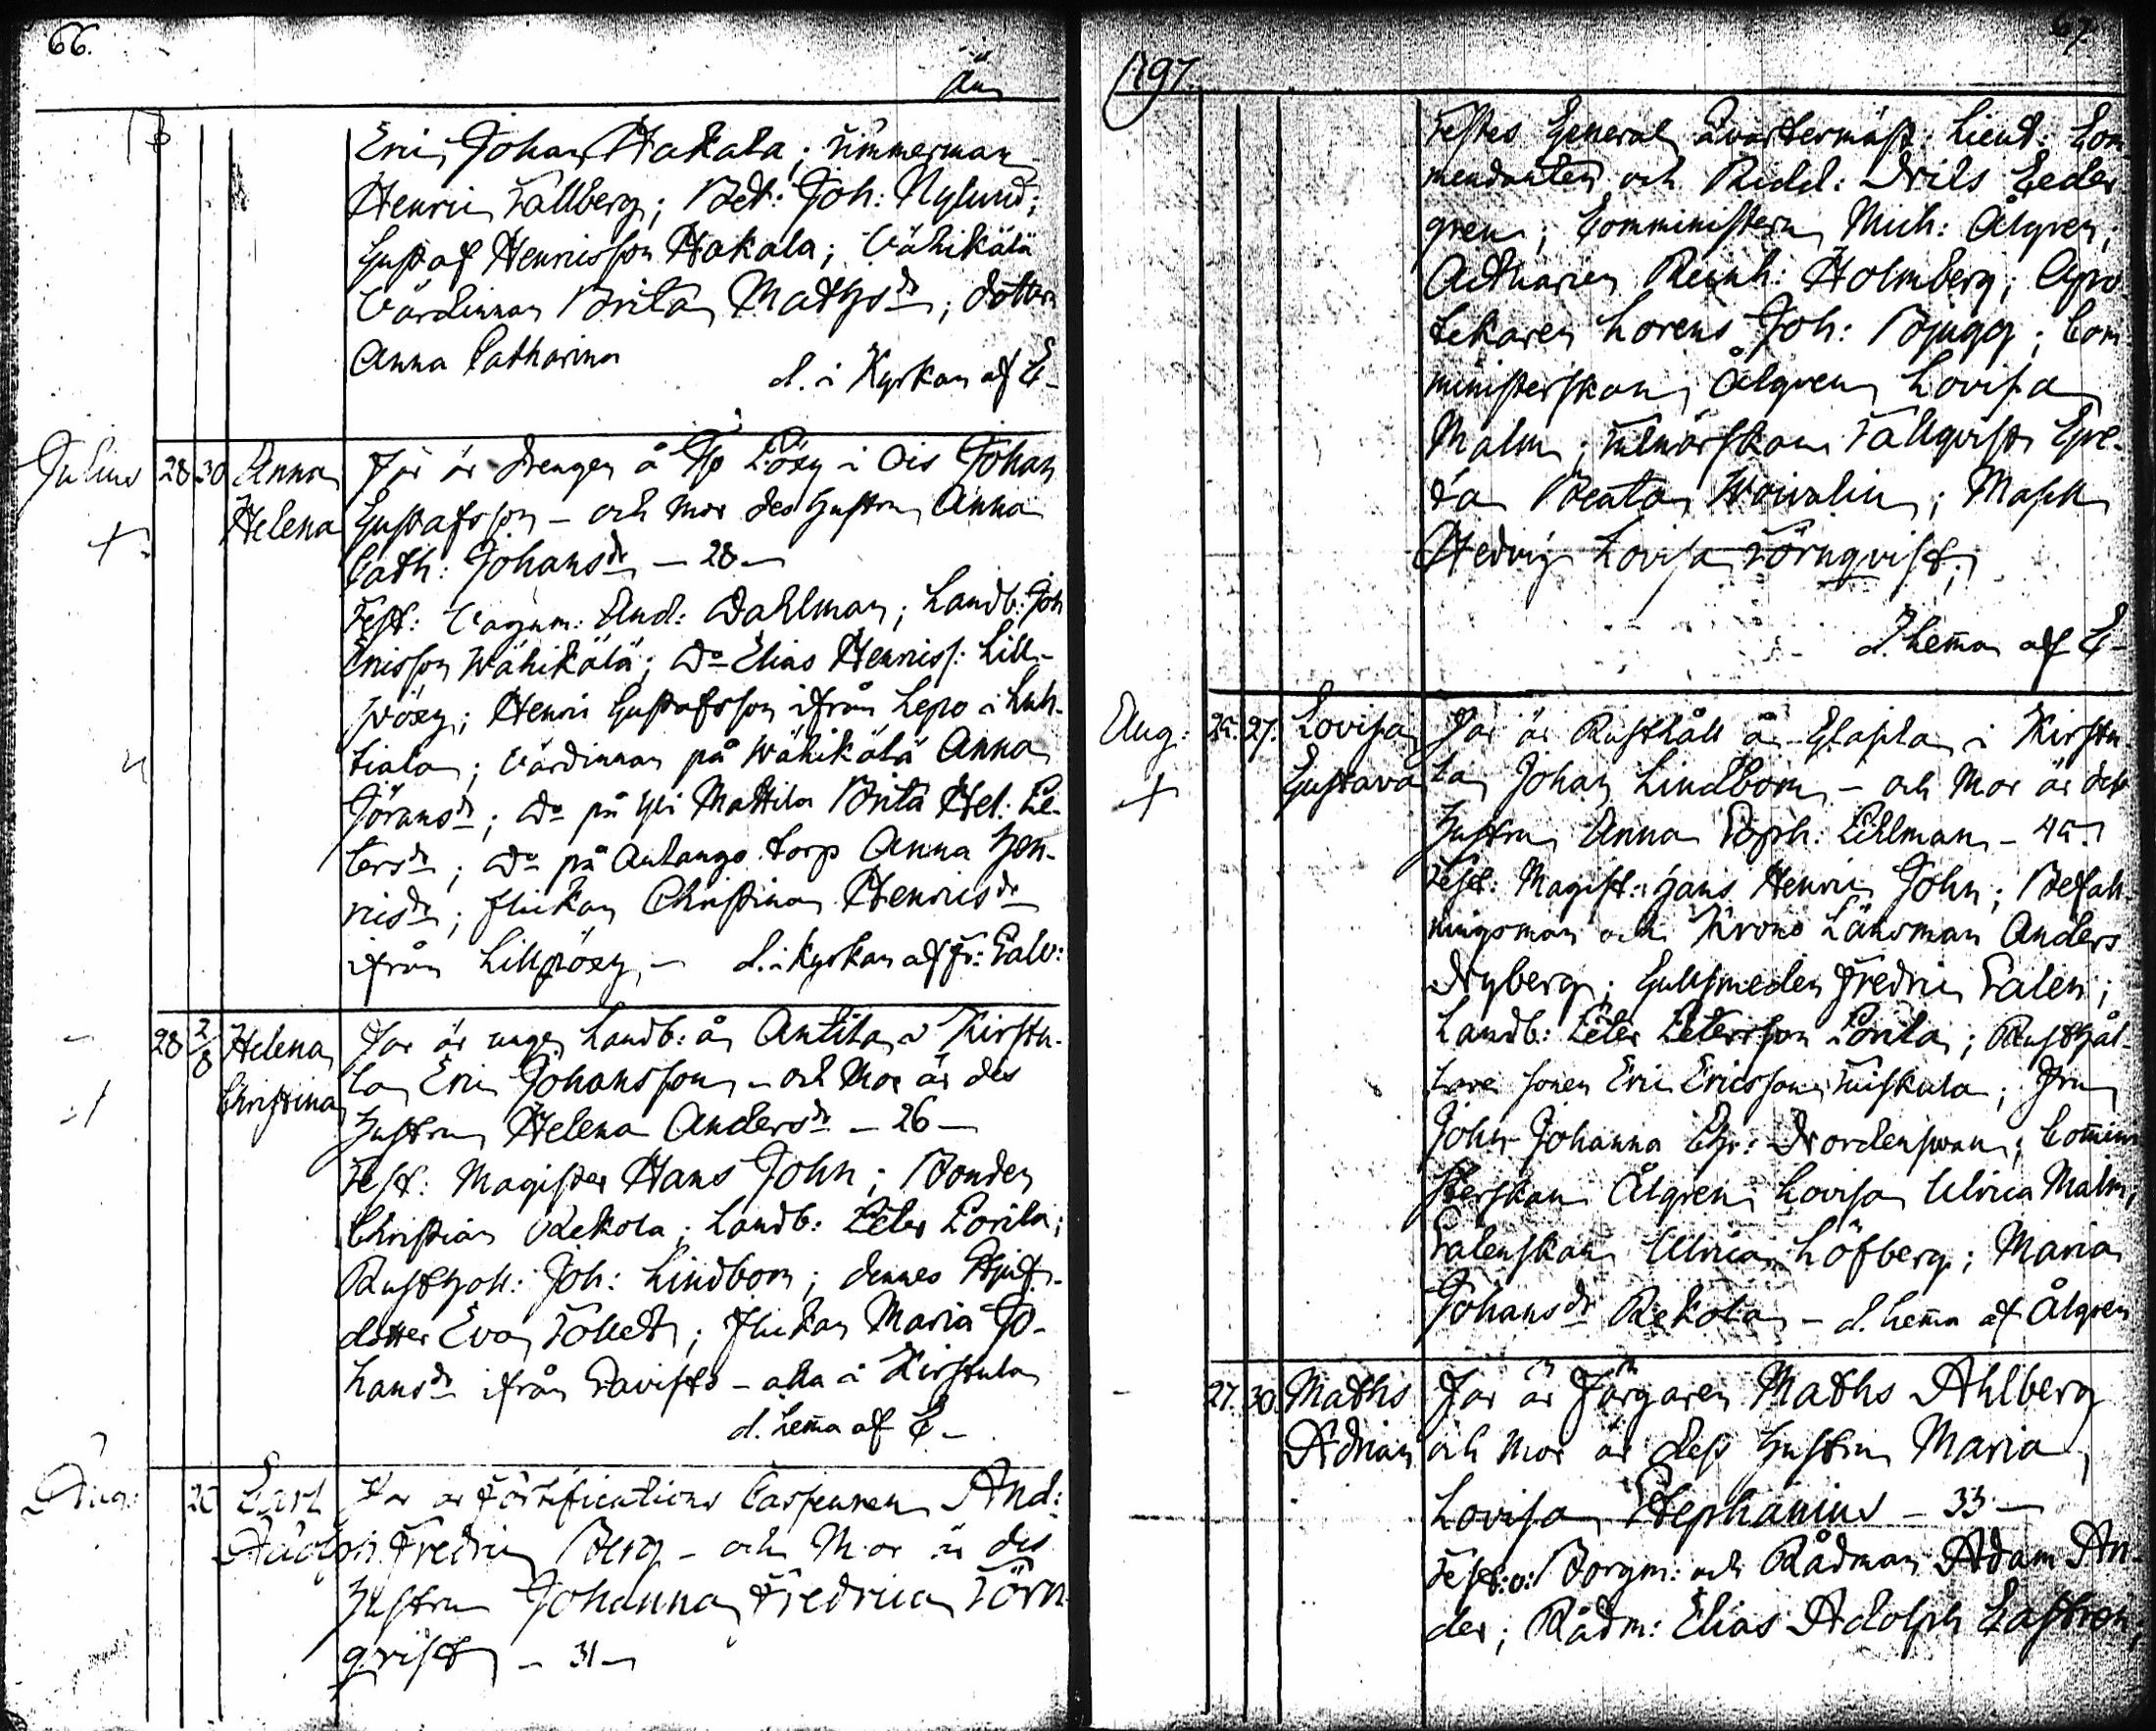 66.
År
Eric Johan Hakala; Timmerman
Henric Tallberg; Bet: Joh: Nylund;
Gustaf Henricsson Hakala; Vähikälä
Värdinnan Brita Mathsdr; dottern
Anna Catharina
d. i Kyrkan af E-
Julius 28 30 Anna Far är drengen å Tp Pöxy i Ois Johan
Helena Gustafsson - och mor des hustru Anna
Cath: Johansdr - 28 -
Test: And: Dahlman; Landb: Joh
Ericsson Wähikälä; Do Elias Henricss: Lill-
pöxy; Henric Gustafsson ifrån Lepo i Luh-
tiala; Värdinnan på Wähikälä Anna
Jöransdr; Do på Yli Mattila Brita Hel: Pe-
tersdr; Do på Aulango torp Anna Hen-
ricsdr; flickan Christina Henricsdr
ifrån Lillpöxy - d. i Kyrkan af Fr: Salv:
28 2/8 Helena Far är unge Landb: å Antila i Kirstu-
Christina la Eric Johansson - och Mor är des
hustru Helena Andersdr - 26 -
Test: Magister Hans John; Bonden
Christian Rekola; Landb: Peter Porila;
Rusthåll: Joh: Lindbom; dennes
dotter Eva Tollet; flickan Maria Jo-
hansdr ifrån Tavisto - alla i Kirstula
d. hema af E-
Aug: Carl Far är Fortifications And:
Adolph Fredric Berg - och Mor är des
hustru Johanna Fredrica Törn-
qvist - 31 -
1797.
67.
Testes General Qvartermäst: Lieut: Com-
mendanten och Ridd: Nils Ceder
gren; Comministern Mich: Ålgren;
Actuarien Reinh: Holmberg; Apo
tekaren Lorens Joh: Bjugg; Com
ministerskan Ålgren Lovisa
Malm; Tallqvist Gre-
ta Beata; Masell
Hedvig Lovisa Törnqvist;
d. hema af E-
Aug: 25. 27. Lovisa Far är Rusthåll å i Kirstu
Gustava la Johan Lindbom - och Mor är dess
hustru Anna Soph: Pihlman - 45 -
Test: Magist: Hans Henric John; Befall-
ningsman och Krono Länsman Anders
Nyberg; Gullsmeden Fredric Salen;
Landb: Peter Petersson Porila; Rusthål-
lare sonen Eric Ericsson Tuiskula; Fru
John Johanna Chr: Nordensvan; Comini
sterskan Ålgren Lovisa Ulrica Malm,
Salenskan Ulrica Löfberg; Maria
Johansdr Rekola - d. hema af Ålgren
27. 30. Maths Far är Färgaren Maths Ahlberg
Adrian och Mor är dess hustru Maria
Lovisa Stephanius - 33 -
Test: v: Borgm: och Rådman Adam An-
der; Rådm: Elias Adolph Castren;